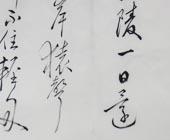 陵一日還
岸猿聲
不住輕舟